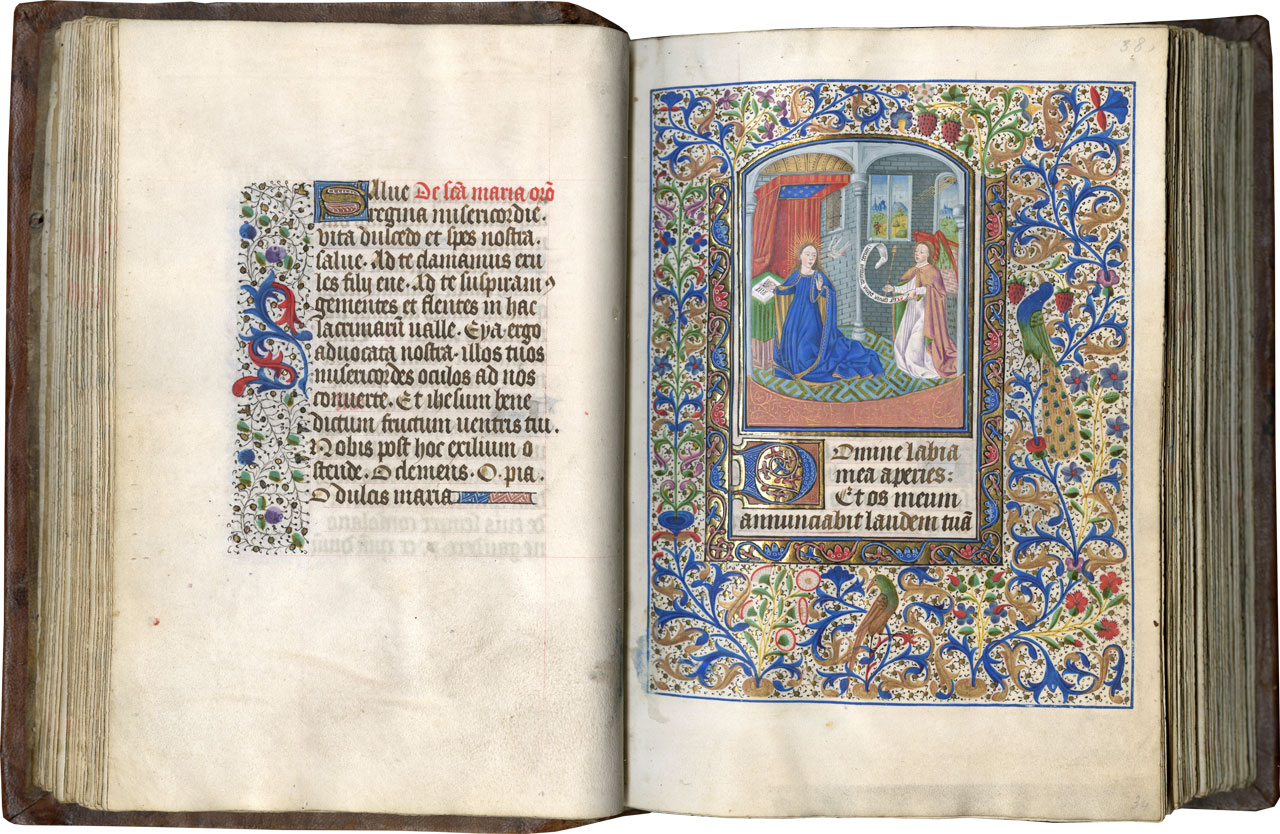 Salue De scā maria orō
regina misericordie.
vita dulcedo et spes nostra.
salue. Ad te clamamus exu
les filij eue. Ad te suspiram⁹
gementes et flentes in hac
lacrimarū ualle. Eya ergo
aduocata nostra. illos tuos
misericordes oculos ad nos
conuerte. Et ihesum bene
dictum fructum uentris tui.
Nobis post hoc exilium o
stende. O clemens. O pia.
O dulcis maria
38
Domine labia
mea aperies:
Et os meum
annunciabit laudem tuā